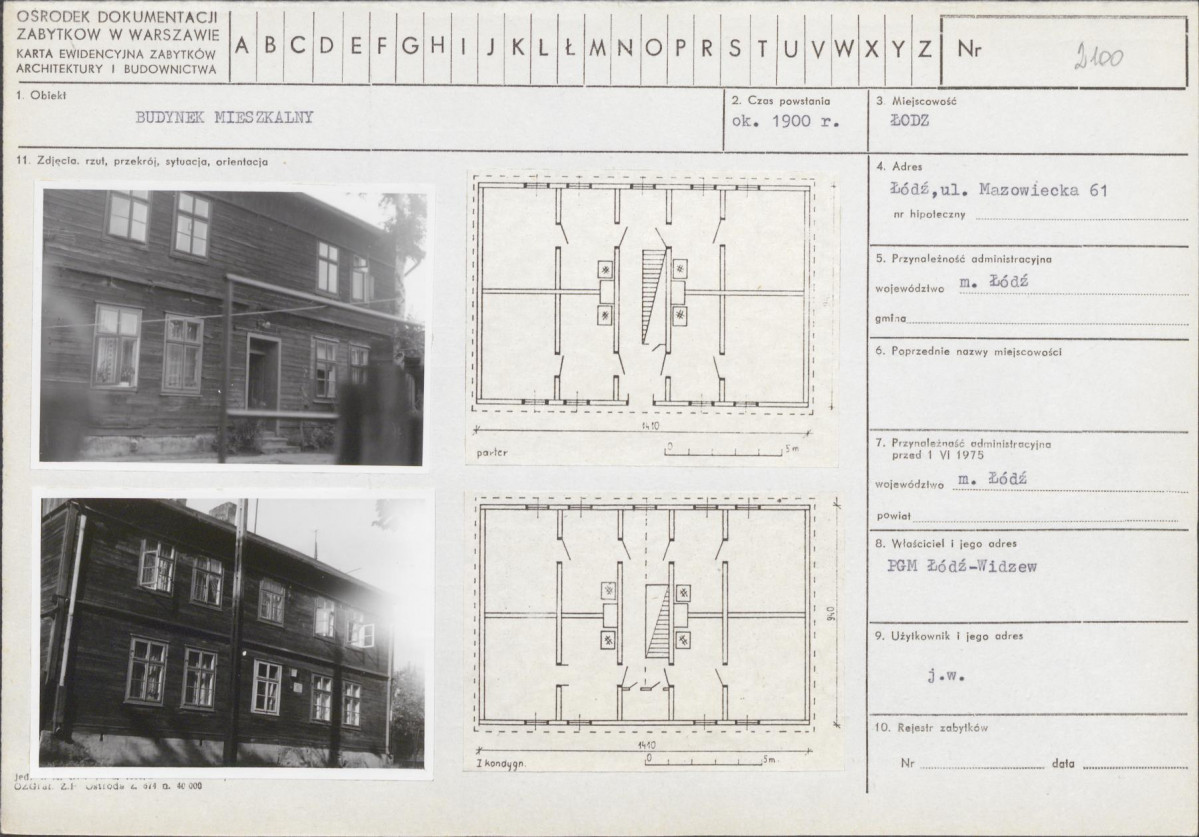 OŚRODEK DOKUMENTACJI
ZABYTKÓW W WARSZAWIE
KARTA EWIDENCYJNA ZABYTKÓW
ARCHITEKTURY I BUDOWNICTWA
A B C D E F G H I J K L Ł M N O P R S T U V W X Y Z
Nr 2100
1. Obiekt
BUDYNEK MIESZKALNY
2. Czas powstania
ok. 1900 r.
3. Miejscowość
ŁODZ
11. Zdjęcia, rzut, przekrój, sytuacja, orientacja
4. Adres
Łódź,ul. Mazowiecka 61
nr hipoteczny
5. Przynależność administracyjna
województwo m. Łódź
gmina
6. Poprzednie nazwy miejscowości
7. Przynależność administracyjna
przed 1 VI 1975
województwo m. Łódź
powiat
8. Właściciel i jego adres
PGM Łódź-Widzew
9. Użytkownik i jego adres
j.w.
10. Rejestr zabytków
Nr data
1410
parter
0 5m
940
1410
I kondygn.
0 5m